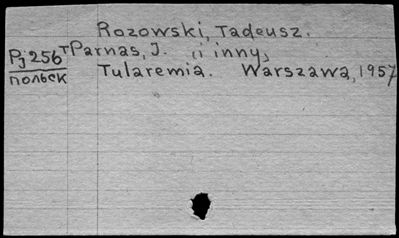 Rozowski, Tadeusz.
Pj 256 т Parnas, J. (i inny)
польск Tularemia. Warszawa, 1957